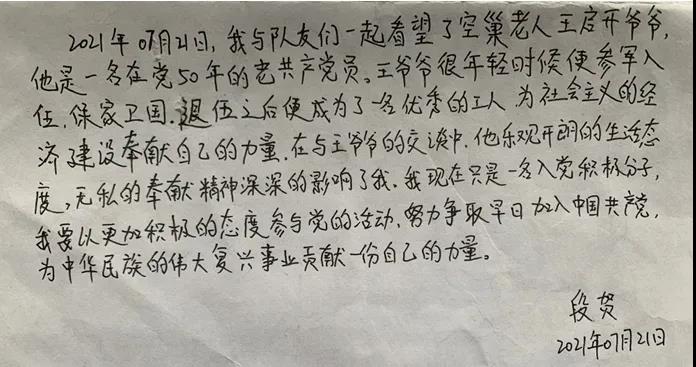 2021年07月21日,我与队友们一起看望了空巢老人王启开爷爷,
他是一名在党50年的老共产党员。王爷爷很年轻时候便参军入
伍,保家卫国,退伍之后便成为了一名优秀的工人,为社会主义的经
济建设奉献自己的力量。在与王爷爷的交谈中,他乐观开朗的生活态
度,无私的奉献精神深深的影响了我。我现在只是一名入党积极分子,
我要以更加积极的态度参与党的活动,努力争取早日加入中国共产党,
为中华民族的伟大复兴事业贡献一份自己的力量。
段贺
2021年07月21日